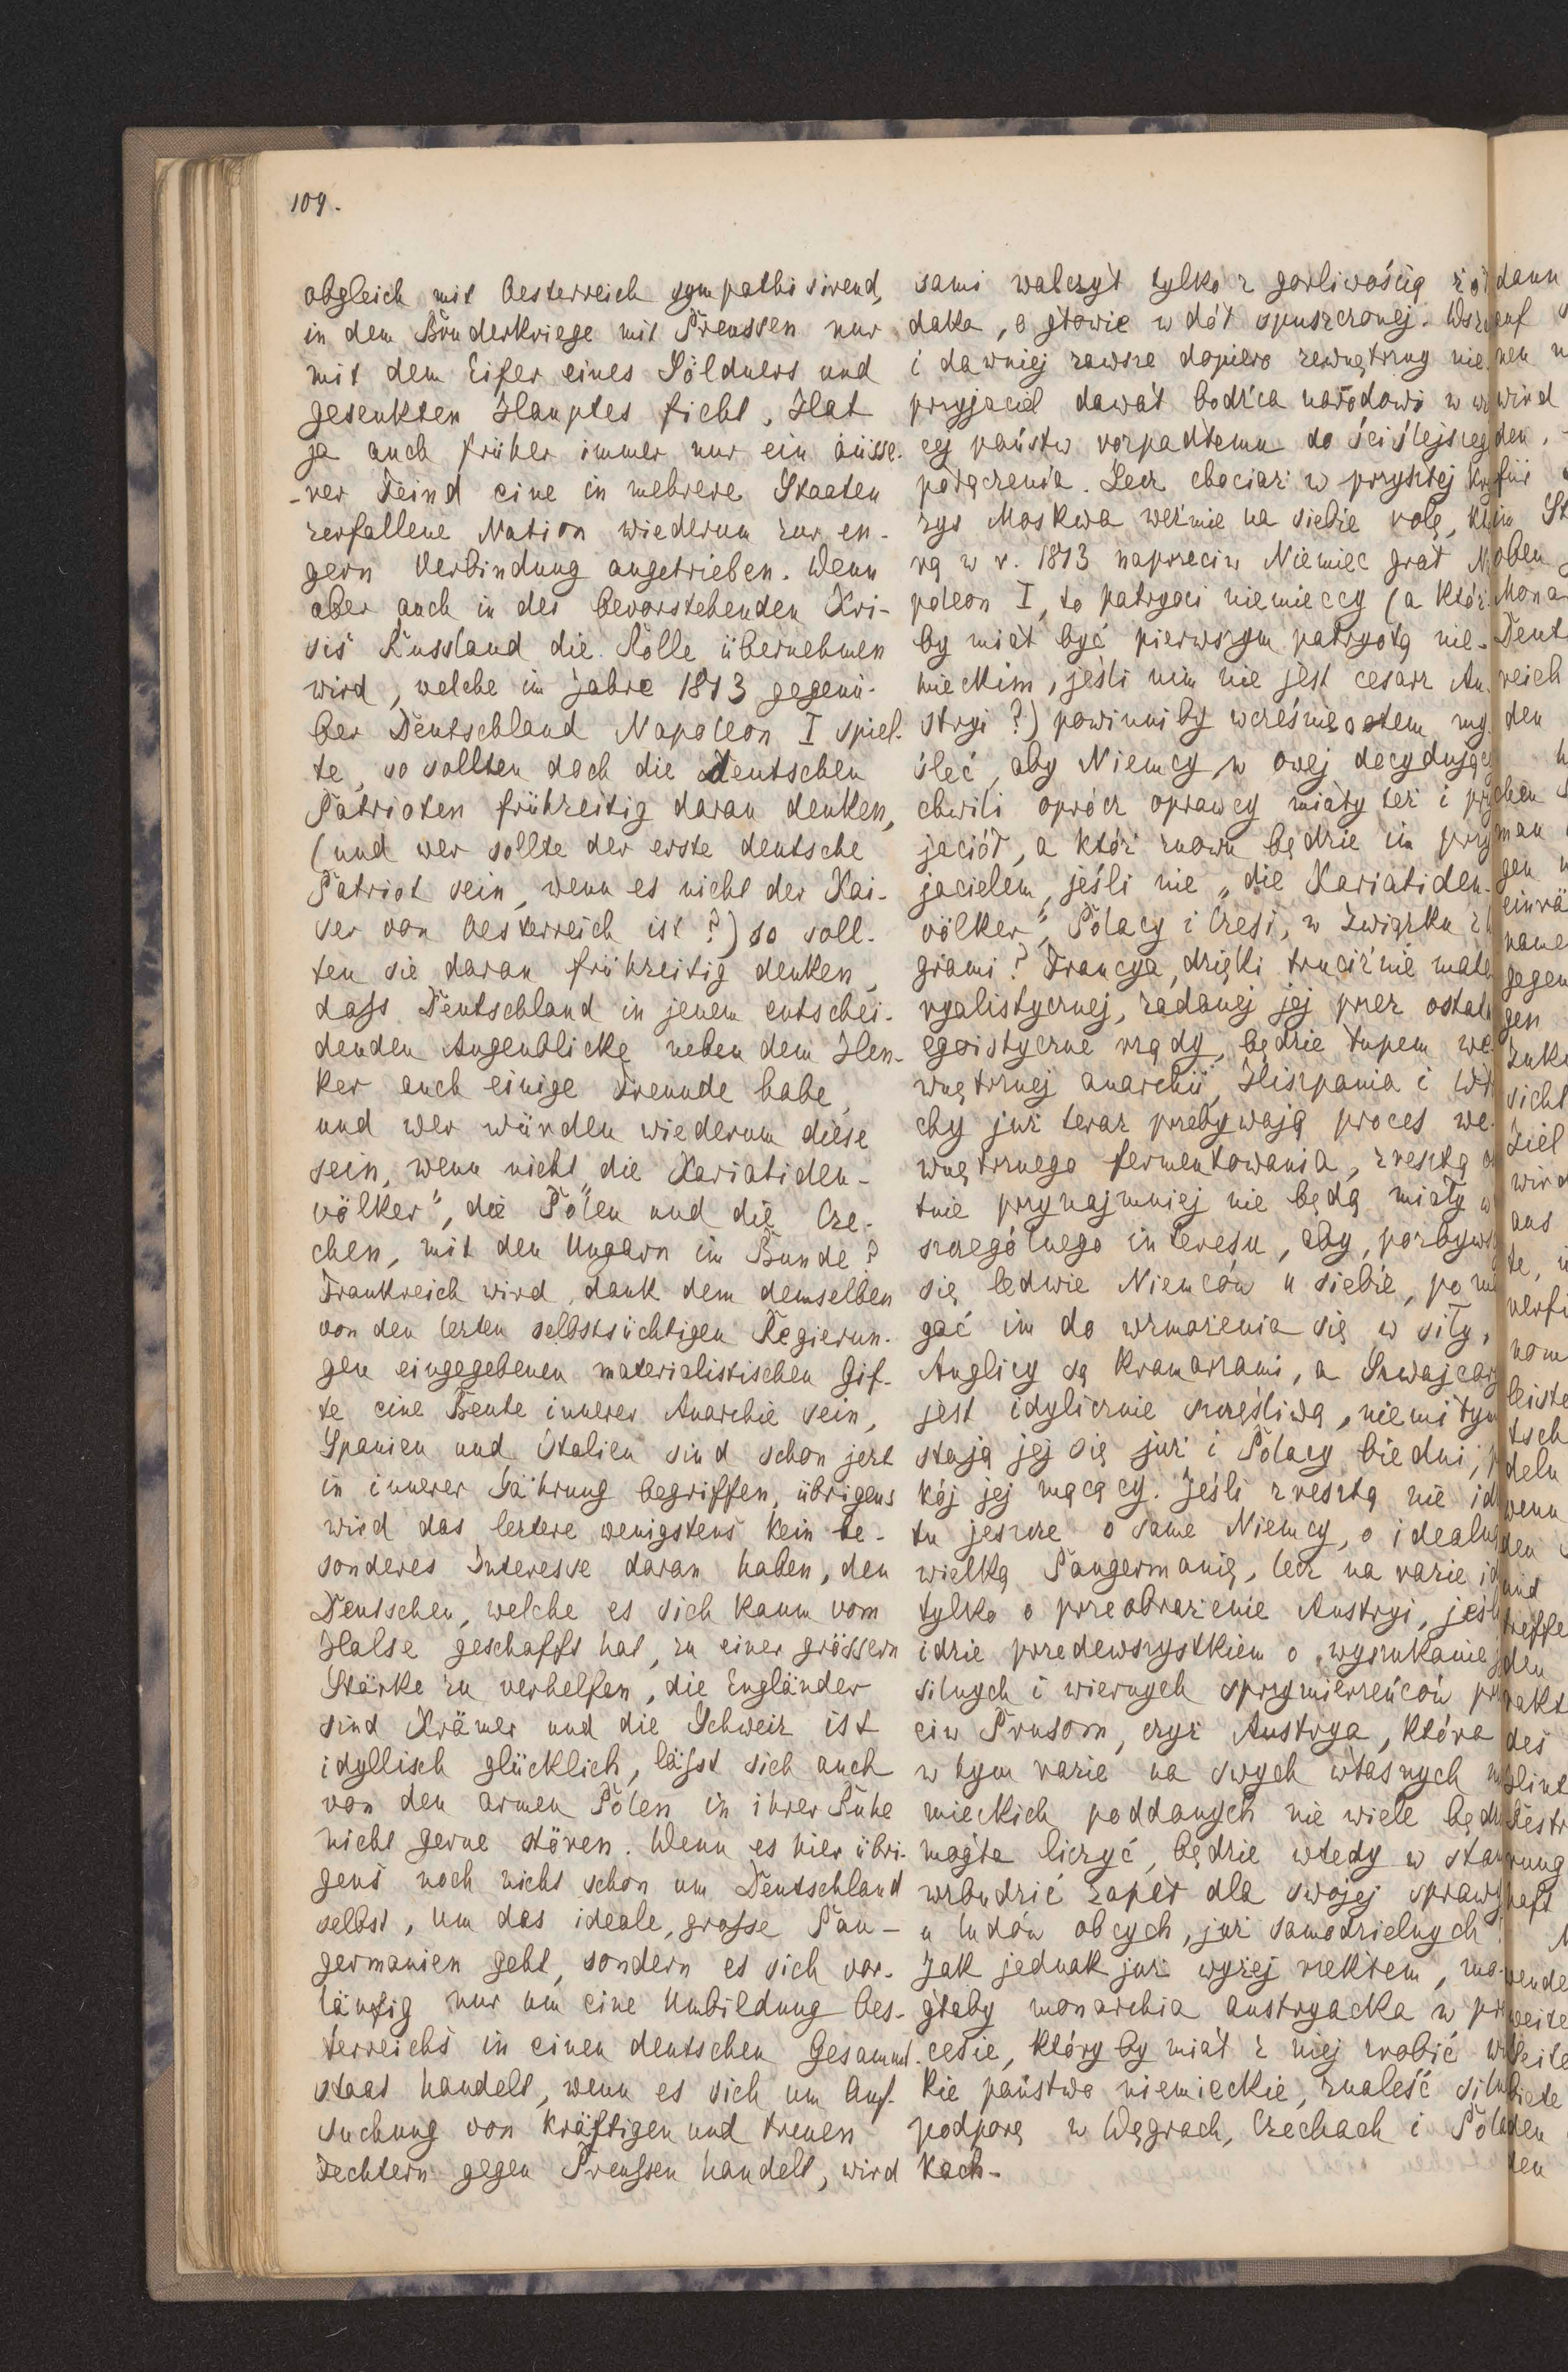 109.
obgleich mit Oesterreich sympathisirend,
in dem Bruderkriege mit Preussen nur
mit dem Eifer eines Söldners und
gesenkten Hauptes ficht. Hat
ja auch früher immer nur ein äusse-
-rer Feind eine in mehrere Staaten
zerfallene Nation wiederum zur en-
gern Verbindung angetrieben. Wenn
aber auch in der bevorstehenden Kri-
sis Russland die Rolle übernehmen
wird, welche im Jahre 1813 gegenü-
ber Deutschland Napoleon I spiel-
te, so sollten doch die deutschen
Patrioten frühzeitig daran denken,
(und wer sollte der erste deutsche
Patriot sein, wenn es nicht der Kai-
ser von Oesterreich ist?) so soll-
ten sie daran frühzeitig denken,
dass Deutschland in jenem entschei-
denden Augenblicke neben dem Hen-
ker auch einige Freunde habe,
und wer würden wiederum diese
sein, wenn nicht „die Kariatiden-
völker“, die Polen und die Cze-
chen, mit den Ungarn im Bunde?
Frankreich wird, dank dem demselben
von den lezten selbstsüchtigen Regierun-
gen eingegebenen materialistischen Gif-
te eine Beute innerer Anarchie sein,
Spanien und Italien sind schon jezt
in innerer Gährung begriffen, übrigens
wird das leztere wenigstens kein be-
sonderes Interesse daran haben, den
Deutschen, welche es sich kaum vom
Halse geschafft hat, zu einer grössern
Stärke zu verhelfen, die Engländer
sind Krämer und die Schweiz ist
idyllisch glücklich, lässt sich auch
von den armen Polen in ihrer Ruhe
nicht gerne stören. Wenn es hier übri-
gens noch nicht schon um Deutschland
selbst, um das ideale, grosse Pan-
germanien geht, sondern es sich vor-
läufig nur um eine Umbildung Oes-
terreichs in einen deutschen Gesammt-
staat handelt, wenn es sich um Auf-
suchung von kräftigen und treuen
Fechtern gegen Preussen handelt, wird
sami walczył tylko z gorliwością żoł
daka, o głowie w dół spuszczonej. Wsz
i dawniej zawsze dopiero zewnętrzny nie-
przyjaciel dawał bodźca narodowi w w
cej państw rozpadłemu do ściślejszeg
połączenia. Lecz chociaż w przyszłej kry
zys Moskwa weźmie na siebie rolę, któ
rą w r. 1813 naprzeciw Niemiec grał N
poleon I, to patryoci niemieccy (a któż-
by miał być pierwszym patryotą nie-
mieckim, jeśli nim nie jest cesarz Au-
stryi?) powinni by wcześnie o tem my-
śleć, aby Niemcy w owej decydujące
chwili oprócz oprawcy miały też i prz
jaciół, a któż znowu będzie im przy
jacielem, jeśli nie „die Kariatiden-
völker“, Polacy i Czesi, w związku z W
grami? Francya, dzięki truciźnie mate
ryalistycznej, zadanej jej przez ostatn
egoistyczne rządy, będzie łupem we-
wnętrznej anarchii, Hiszpania i Wł
chy już teraz przebywają proces we-
wnętrznego fermentowania, zresztą o
tnie przynajmniej nie będą miały
szczególnego interesu, aby, pozbyws
się ledwie Niemców u siebie, poma
gać im do wzmożenia się w siły,
Anglicy są kramarzami, a Szwajcary
jest idylicznie szczęśliwą, niemiłym
stają jej się już i Polacy biedni, p
kój jej mącący. Jeśli zresztą nie id
tu jeszcze o same Niemcy, o idealną
wielką Pangermanię, lecz na razie id
tylko o przeobrażenie Austryi, jeśli
idzie przedewszystkiem o wyszukanie
silnych i wiernych sprzymierzeńców prz
ciw Prusom, czyż Austrya, która
w tym razie na swych własnych n
mieckich poddanych nie wiele będz
mogła liczyć, będzie wtedy w stan
wzbudzić zapał dla swojej sprawy
u ludów obcych, już samodzielnych?
Jak jednak już wyżej rzekłem, mo-
głaby monarchia austryacka w pr
cesie, który by miał z niej zrobić w
kie państwo niemieckie, znaleść siln
podporę w Węgrach, Czechach i Pola
kach.
dann
auf
nen
wird
den,
für
in St
oben
Mona
Deut
reich
den
chen
man
gen
einrä
name
gegen
gen
Zuk
sicht
Ziel
wird
aus
te,
verf
nom
leiste
tsch
deln
wenn
den
und
treffe
den
rakt
des
Oestr
rung
haft
wende
weite
Seite
biete
den
den